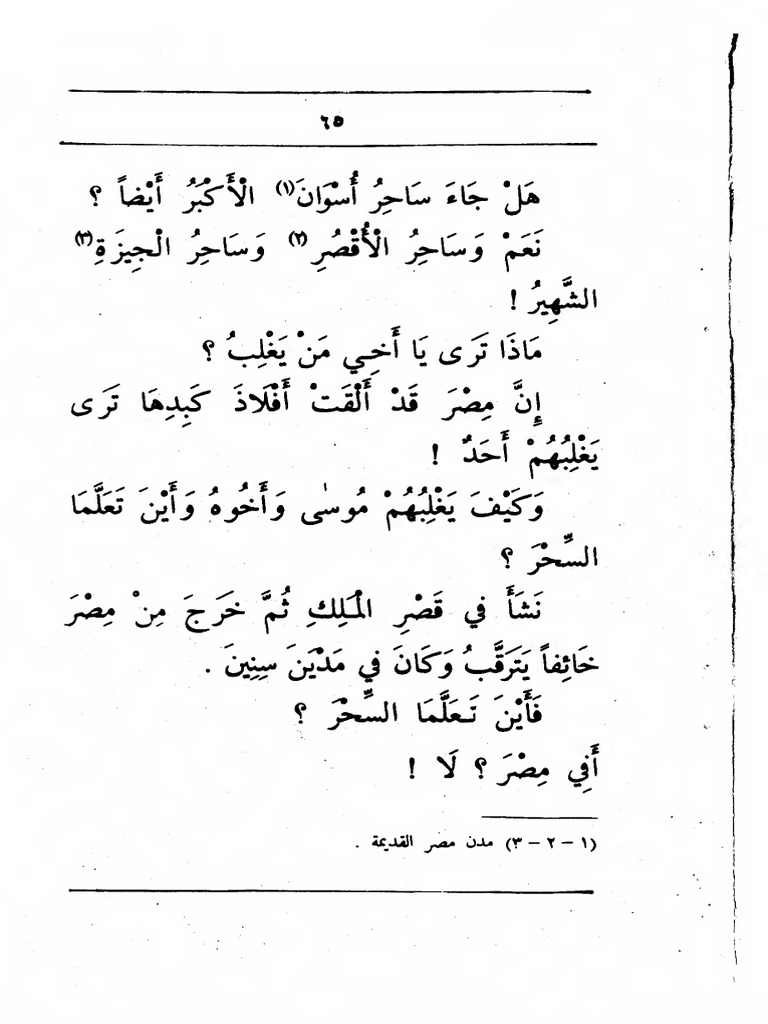 ٦٥
هَلْ جَاءَ سَاحِرُ أُسْوَانَ(١) الْأَكْبَرُ أَيْضاً ؟
نَعَمْ وَسَاحِرُ الْأُقْصُرِ(٢) وَسَاحِرُ الْجِيزَةِ(٣)
الشَّهِيرُ !
مَاذَا تَرَى يَا أَخِي مَنْ يَغْلِبُ ؟
إِنَّ مِصْرَ قَدْ أَلْقَتْ أَفْلَاذَ كَبِدِهَا تَرَى
يَغْلِبُهُمْ أَحَدٌ !
وَكَيْفَ يَغْلِبُهُمْ مُوسٰى وَأَخُوهُ وَأَيْنَ تَعَلَّمَا
السِّحْرَ ؟
نَشَأَ في قَصْرِ الْمَلِكِ ثُمَّ خَرَجَ مِنْ مِصْرَ
خَائِفاً يَتَرَقَّبُ وَكَانَ في مَدْيَنَ سِنِينَ .
فَأَيْنَ تَعَلَّمَا السِّحْرَ ؟
أَفِي مِصْرَ ؟ لَا !
(١ – ٢ – ٣) مدن مصر القديمة .